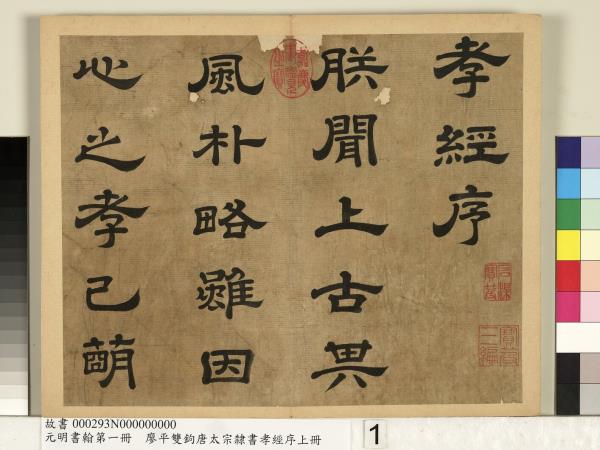 孝經序
朕聞上古其
風朴略雖因
心之孝已萌
嘉慶御覽之寶
石渠寶笈
寶笈三編
故書 000293N000000000
元明書翰第一冊　廖平雙鉤唐太宗隸書孝經序上冊
1